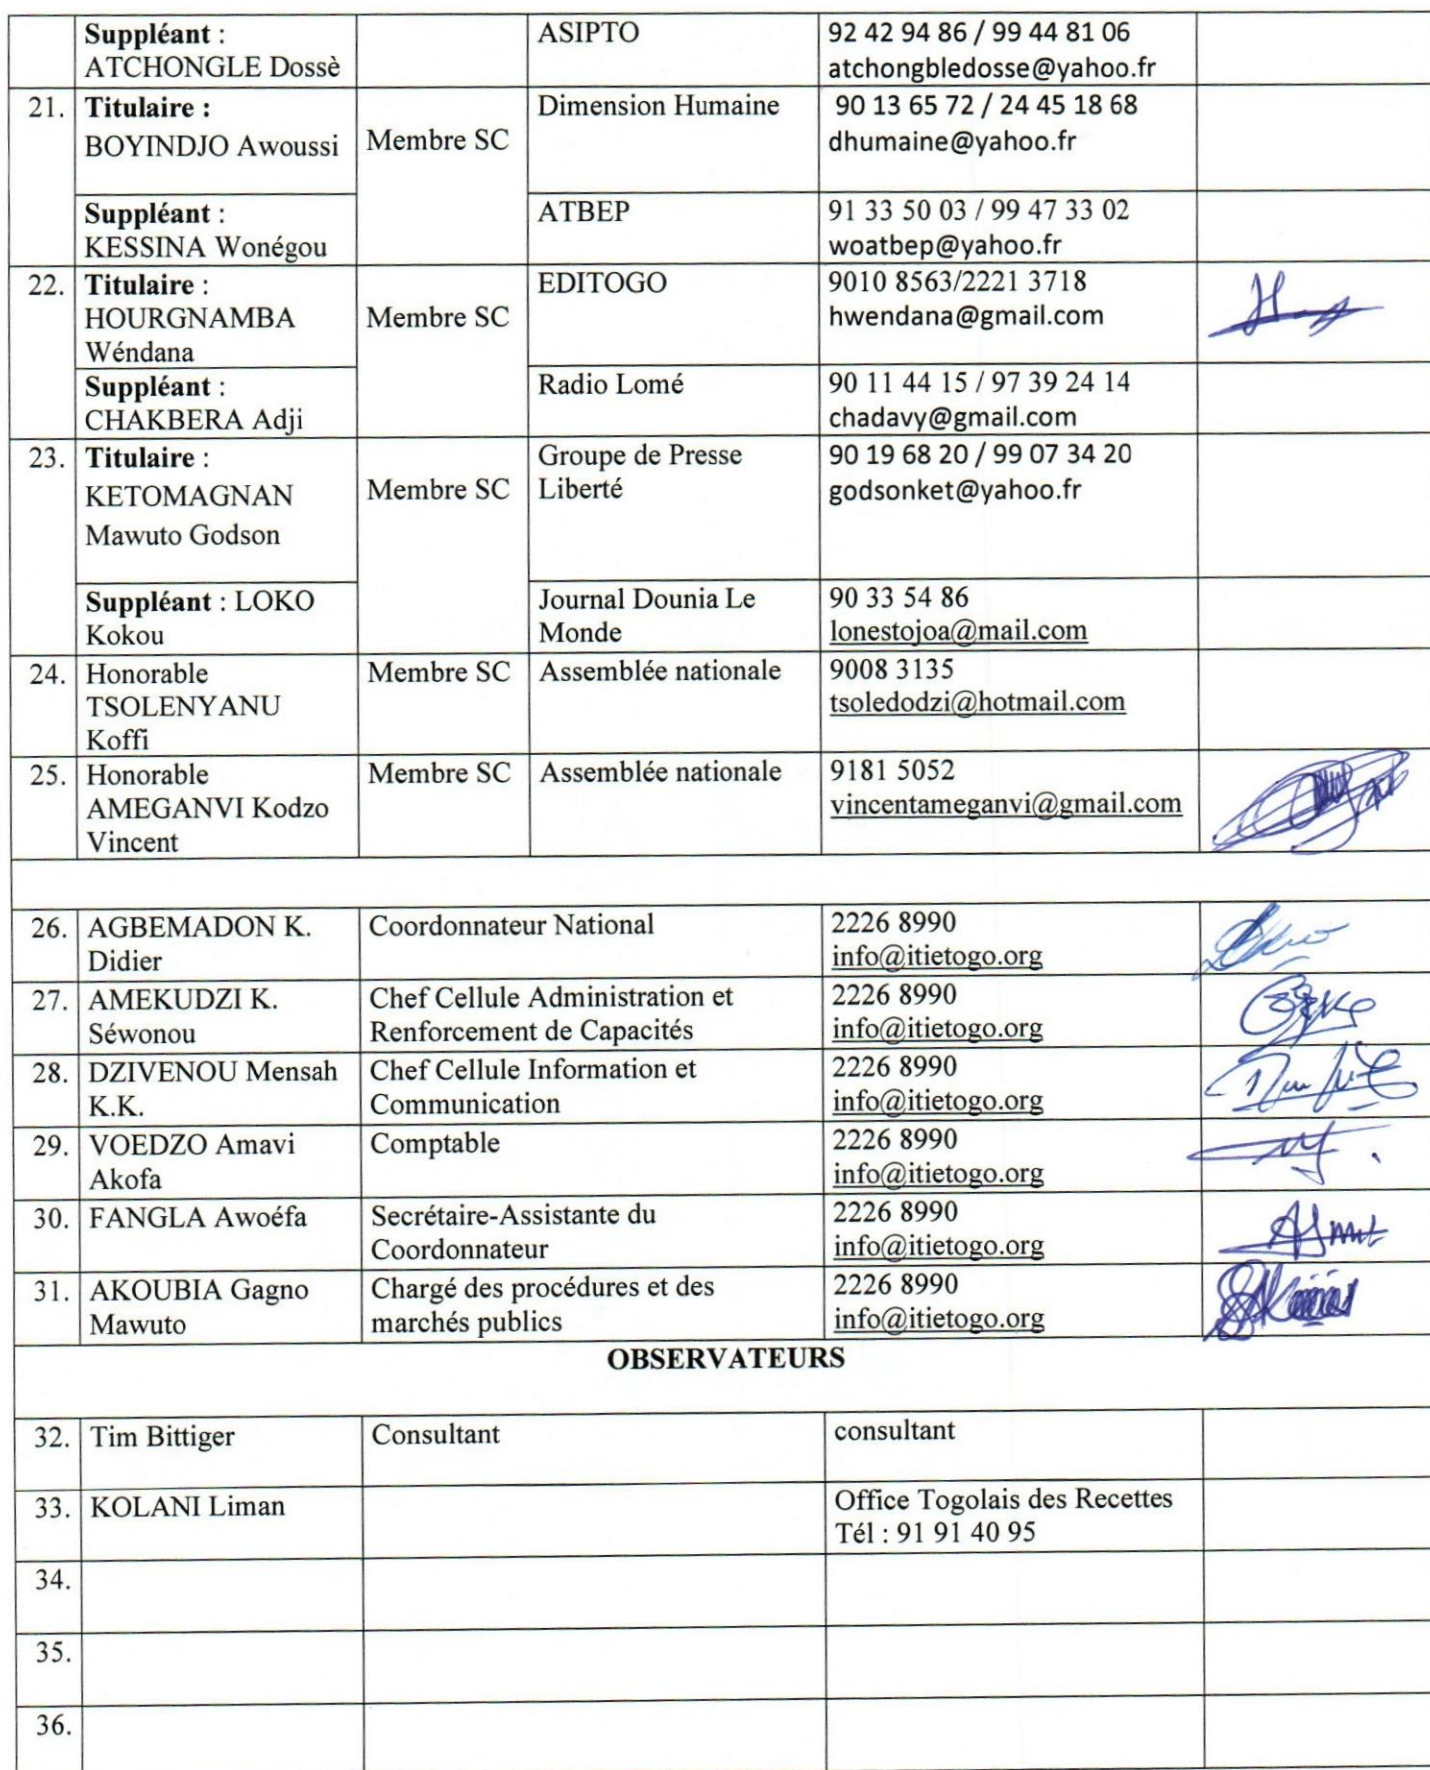 Suppléant :
ATCHONGLE Dossè
ASIPTO
92 42 94 86 / 99 44 81 06
atchongbledosse@yahoo.fr
21.
Titulaire :
BOYINDJO Awoussi
Membre SC
Dimension Humaine
90 13 65 72 / 24 45 18 68
dhumaine@yahoo.fr
Suppléant :
KESSINA Wonégou
ATBEP
91 33 50 03 / 99 47 33 02
woatbep@yahoo.fr
22.
Titulaire :
HOURGNAMBA
Wéndana
Membre SC
EDITOGO
9010 8563/2221 3718
hwendana@gmail.com
Suppléant :
CHAKBERA Adji
Radio Lomé
90 11 44 15 / 97 39 24 14
chadavy@gmail.com
23.
Titulaire :
KETOMAGNAN
Mawuto Godson
Membre SC
Groupe de Presse
Liberté
90 19 68 20 / 99 07 34 20
godsonket@yahoo.fr
Suppléant : LOKO
Kokou
Journal Dounia Le
Monde
90 33 54 86
lonestojoa@mail.com
24.
Honorable
TSOLENYANU
Koffi
Membre SC
Assemblée nationale
9008 3135
tsoledodzi@hotmail.com
25.
Honorable
AMEGANVI Kodzo
Vincent
Membre SC
Assemblée nationale
9181 5052
vincentameganvi@gmail.com
26.
AGBEMADON K.
Didier
Coordonnateur National
2226 8990
info@itietogo.org
27.
AMEKUDZI K.
Séwonou
Chef Cellule Administration et
Renforcement de Capacités
2226 8990
info@itietogo.org
28.
DZIVENOU Mensah
K.K.
Chef Cellule Information et
Communication
2226 8990
info@itietogo.org
29.
VOEDZO Amavi
Akofa
Comptable
2226 8990
info@itietogo.org
30.
FANGLA Awoéfa
Secrétaire-Assistante du
Coordonnateur
2226 8990
info@itietogo.org
31.
AKOUBIA Gagno
Mawuto
Chargé des procédures et des
marchés publics
2226 8990
info@itietogo.org
OBSERVATEURS
32.
Tim Bittiger
Consultant
consultant
33.
KOLANI Liman
Office Togolais des Recettes
Tél : 91 91 40 95
34.
35.
36.